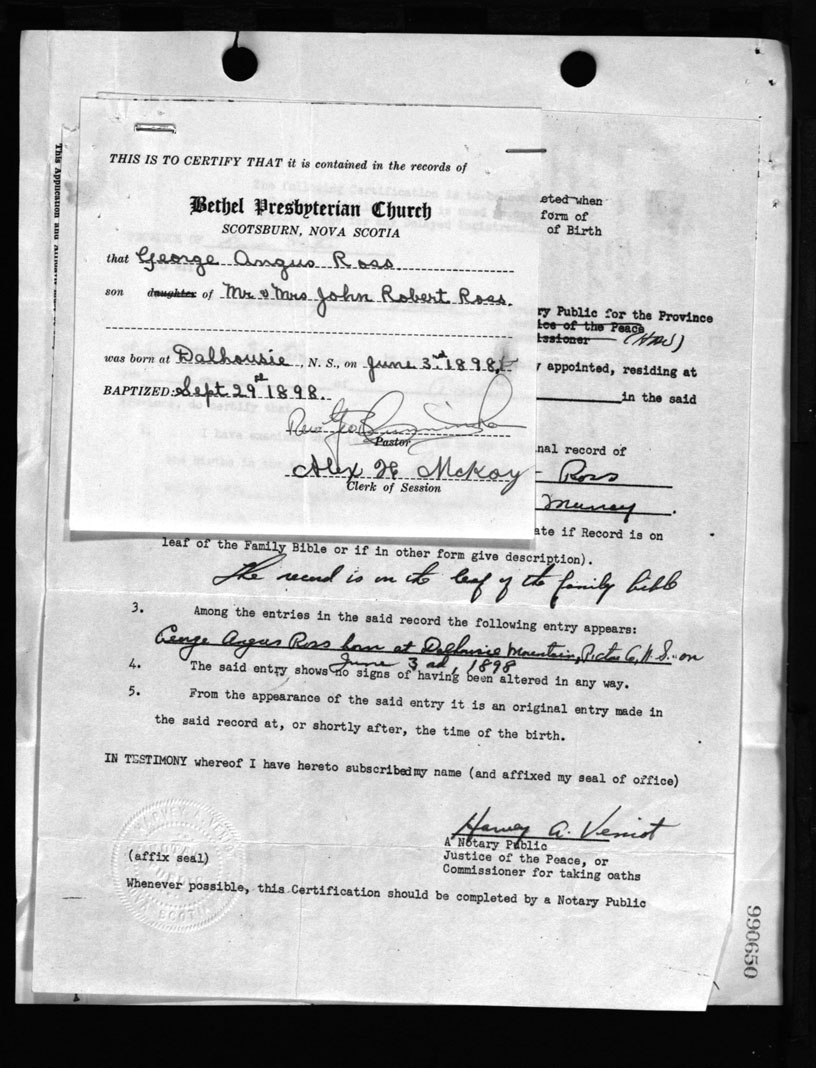 THIS IS TO CERTIFY THAT it is contained in the records of
Bethel Presbyterian Church
SCOTSBURN, NOVA SCOTIA
that George Angus Ross.
son daughter of Mr & Mrs John Robert Ross.
was born at Dalhousie, N. S., on June 3rd 1898,
BAPTIZED: Sept 29 1898.
Rev. Geo
Pastor
Alex H McKay
Clerk of Session
This Application and
eted when
form of
of Birth
ry Public for the Province
ice of the Peace
issioner
appointed, residing at
in the said
nal record of
Ross
Murray.
ate if Record is on
leaf of the Family Bible or if in other form give description).
The record is on the leaf of the family bible
3. Among the entries in the said record the following entry appears:
George Angus Ross born at Dalhousie Mountain, Pictou Co, N.S. on
June 3rd, 1898
4. The said entry shows no signs of having been altered in any way.
5. From the appearance of the said entry it is an original entry made in
the said record at, or shortly after, the time of the birth.
IN TESTIMONY whereof I have hereto subscribed my name (and affixed my seal of office)
Harvey A. Veniot
A Notary Public
Justice of the Peace, or
Commissioner for taking oaths
(affix seal)
Whenever possible, this Certification should be completed by a Notary Public
990650